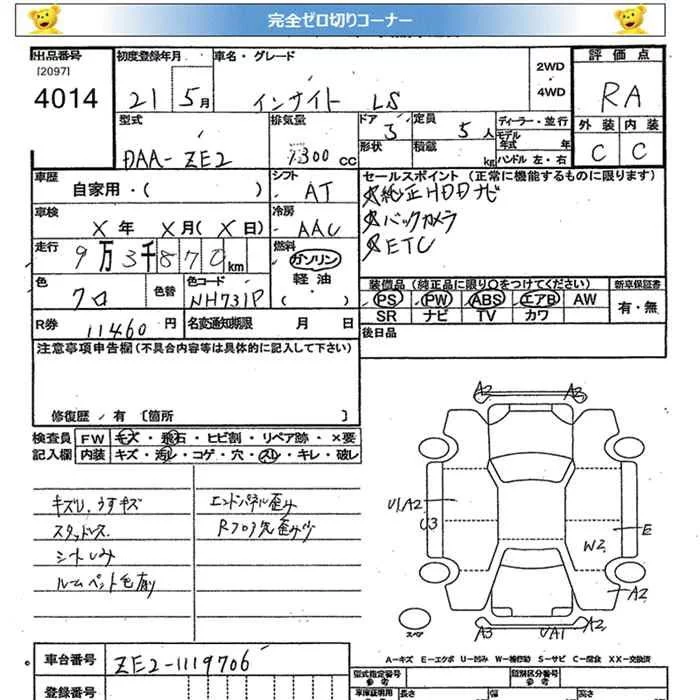 完全ゼロ切りコーナー
出品番号 初度登録年月 車名・グレード 2WD・4WD 評価点
[2097]
4014 21 5月 インサイト LS RA
型式 排気量 ドア 定員 ディーラー・並行 外装 内装
DAA-ZE2 1300cc 3 5人 モデル年式 年 C C
形状 積載 kg ハンドル 左・右
車歴 シフト セールスポイント (正常に機能するものに限ります)
自家用・( ) AT 純正HDDナビ
車検 冷房 バックカメラ
X年 X月(X日) AAC ETC
走行 燃料
9万3千870km ガソリン
軽油
( )
色 色替 色コード 装備品 (純正品に限り○をつけてください) 新車保証書
クロ NH731P PS PW ABS エアB AW 有・無
SR ナビ TV カワ
R券 11460円 名変通知期限 月 日 後日品
注意事項申告欄(不具合内容等は具体的に記入して下さい)
修復歴/有 [箇所 ]
検査員 FW キズ・飛石・ヒビ割・リペア跡・×要
記入欄 内装 キズ・汚レ・コゲ・穴・スレ・キレ・破レ
キズU、うすキズ エンドパネル歪み
スタッドレス Rフロア先歪み少
シートしみ
ルームペット毛有り
A2 A2
U1.A2
U3
E
W2
A2
スペア
A3 UA1 A2
A-キズ E-エクボ U-凹み W-補修跡 S-サビ C-腐食 XX-交換済
車台番号 ZE2-1119706
型式指定番号 参考 類別区分番号 参考
登録番号 車庫証明用 参考 長さ 幅 高さ